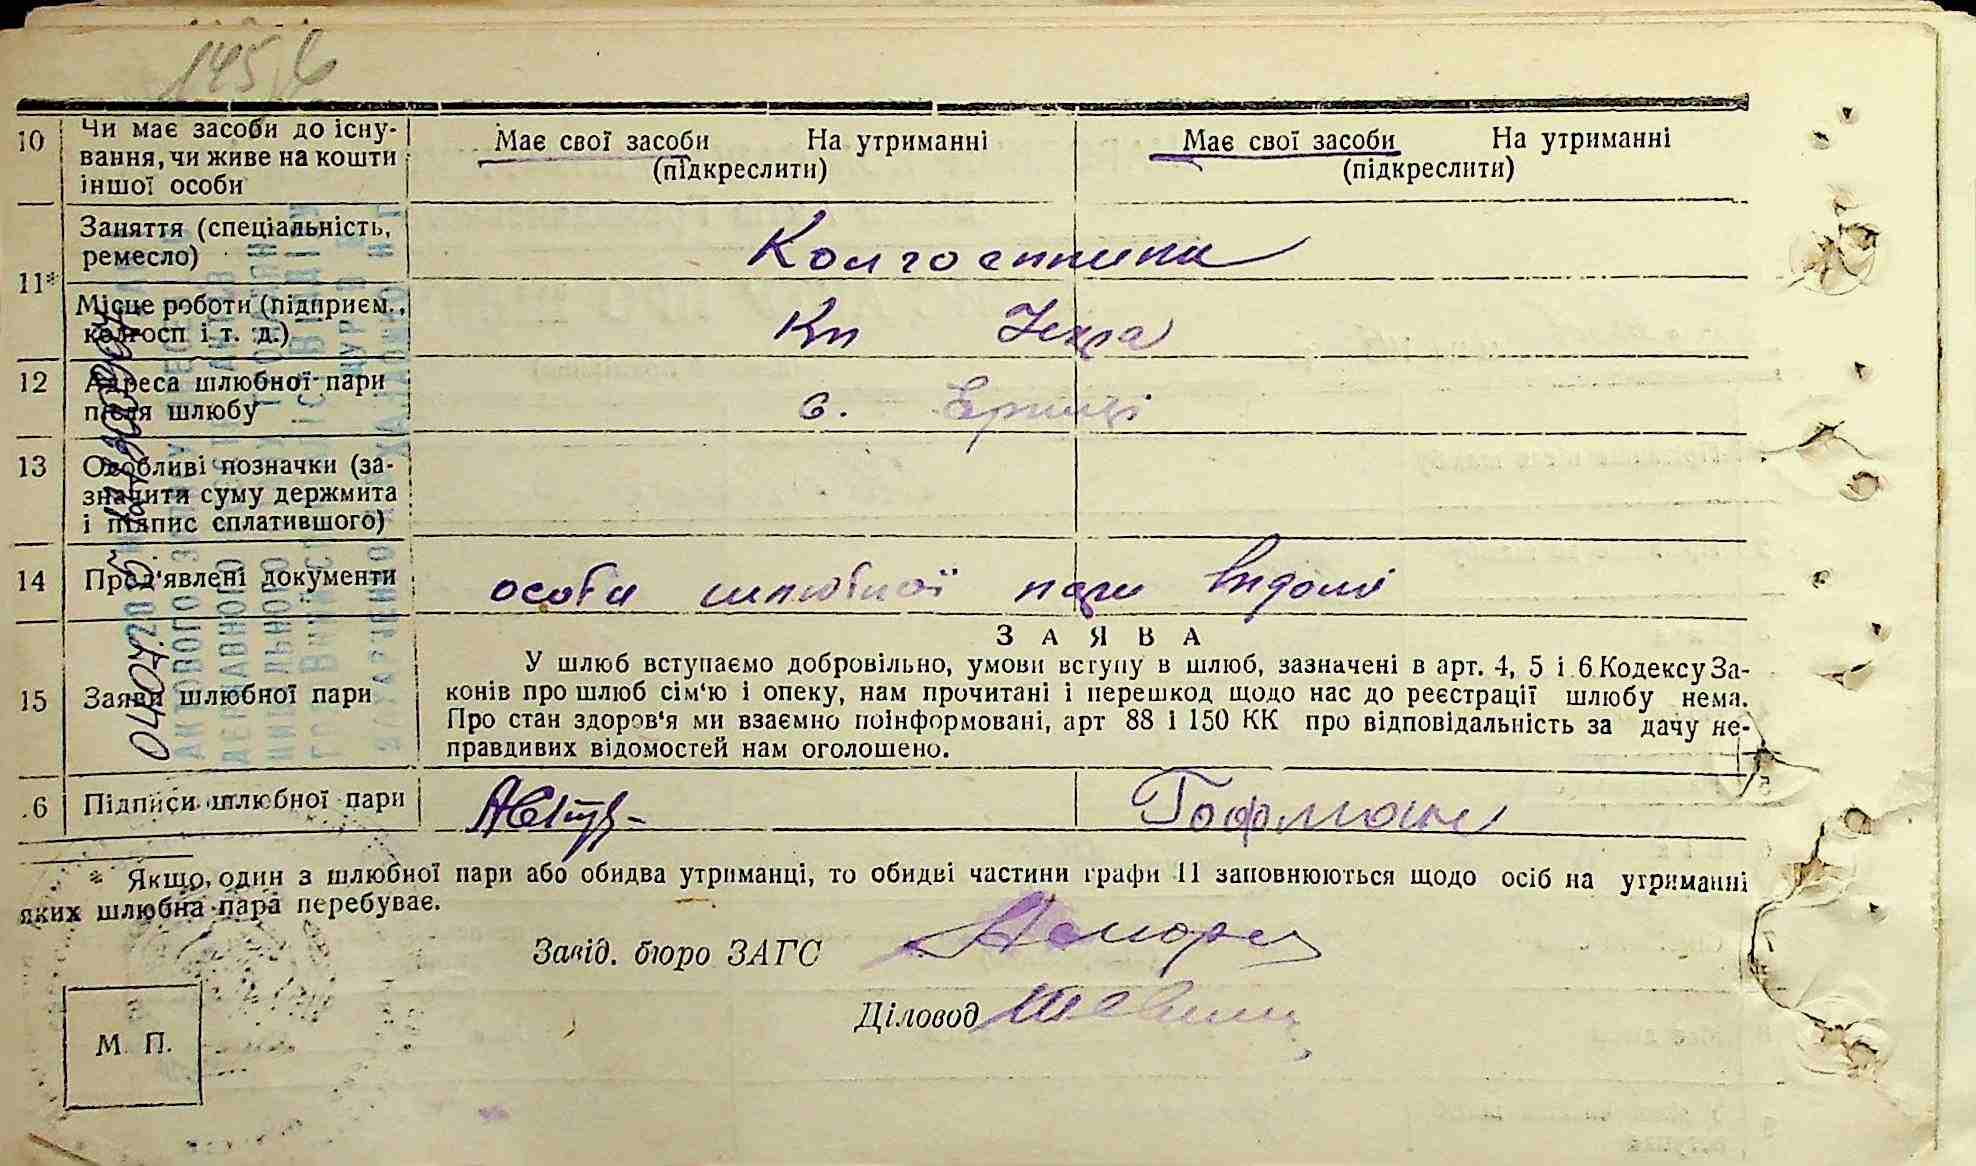 145
10 Чи має засоби до існу-
вання, чи живе на кошти
іншої особи
Має свої засоби На утриманні
(підкреслити)
Має свої засоби На утриманні
(підкреслити)
11* Заняття (спеціальність,
ремесло)
Колгоспники
Місце роботи (підприєм.,
колгосп і т. д.)
Кп Іскра
12 Адреса шлюбної пари
після шлюбу
с.
13 Особливі позначки (за-
значити суму держмита
і підпис сплатившого)
14 Пред'явлені документи
особи шлюбної пари видомі
15 Заяви шлюбної пари
ЗАЯВА
У шлюб вступаємо добровільно, умови вступу в шлюб, зазначені в арт. 4, 5 і 6 Кодексу За-
конів про шлюб сім'ю і опеку, нам прочитані і перешкод щодо нас до реєстрації шлюбу нема.
Про стан здоров'я ми взаємно поінформовані, арт 88 і 150 КК про відповідальність за дачу не-
правдивих відомостей нам оголошено.
6 Підписи шлюбної пари
Гофман
* Якщо, один з шлюбної пари або обидва утриманці, то обидві частини графи 11 заповнюються щодо осіб на утриманні
яких шлюбна пара перебуває.
Завід. бюро ЗАГС
Діловод
М. П.